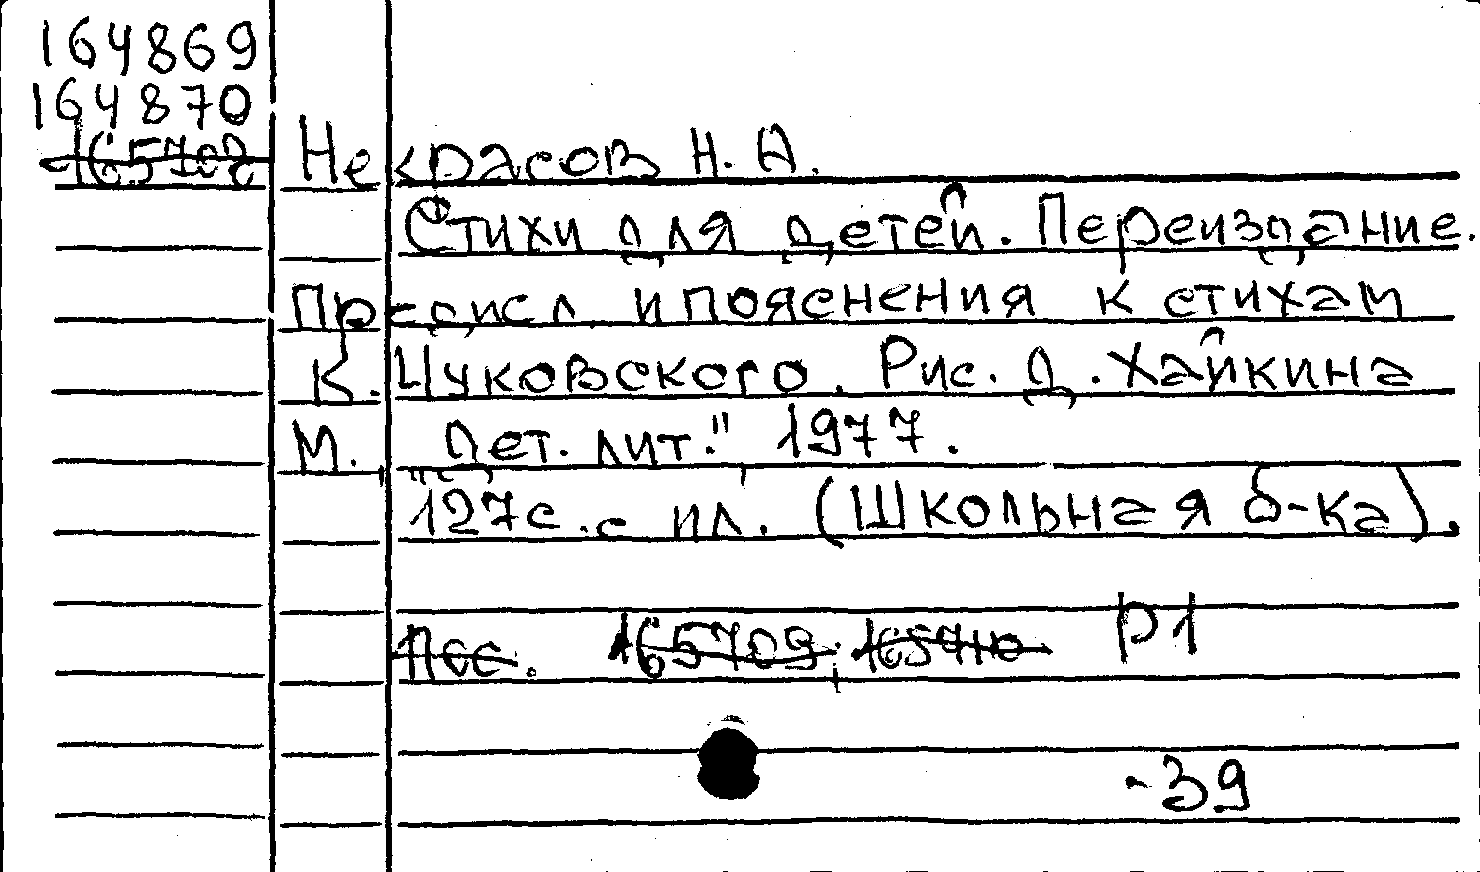 164869
164870
165708
Некрасов Н. А.
Стихи для детей. Переиздание.
Предисл. и пояснения к стихам
К. Чуковского. Рис. Д. Хайкина
М. „Дет. лит.", 1977.
127с. с ил. (Школьная б-ка).
165709; 165710 Р1
-39